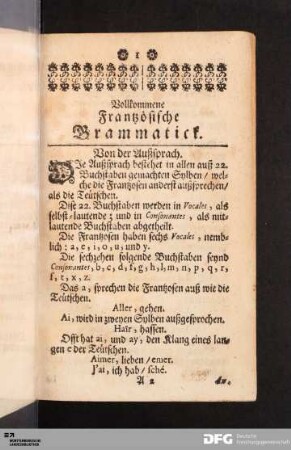 1
Vollkommene
Frantzösische
Grammatick.
Von der Außsprach.
DIe Außsprach bestehet in allen auß 22.
Buchstaben gemachten Sylben / wel-
che die Frantzosen anderst außsprechen/
als die Teütschen.
Dise 22. Buchstaben werden in Vocales, als
selbst-lautende; und in Consonantes, als mit-
lautende Buchstaben abgetheilt.
Die Frantzosen haben sechs Vocales, nemb-
lich: a, e, i, o, u, und y.
Die sechzehen folgende Buchstaben seynd
Consonantes, b, c, d, f, g, h, l, m, n, p, q, r,
s, t, x, z.
Das a, sprechen die Frantzosen auß wie die
Teütschen.
Aller, gehen.
Ai, wird in zweyen Sylben außgesprochen.
Haïr, hassen.
Offt hat ai, und ay, den Klang eines lan-
gen e der Teütschen.
Aimer, lieben / emer.
J'ai, ich hab / sché.
A 2
WÜRTTEMBERGISCHE
LANDESBIBLIOTHEK
DFG Deutsche
Forschungsgemeinschaft